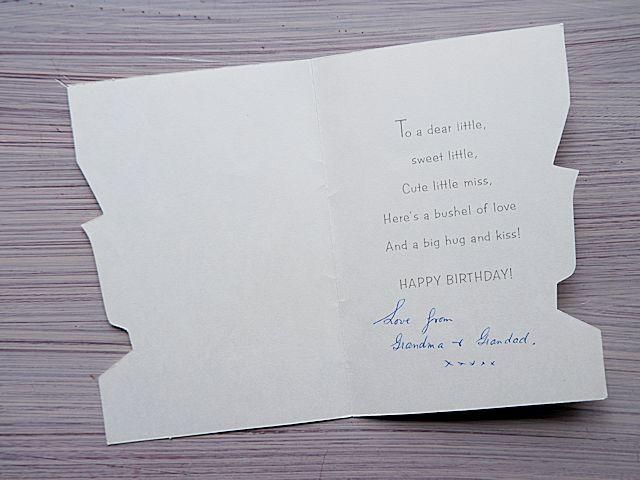 To a dear little,
sweet little,
Cute little miss,
Here's a bushel of love
And a big hug and kiss!
HAPPY BIRTHDAY!
Love from
Grandma + Grandad.
x x x x x